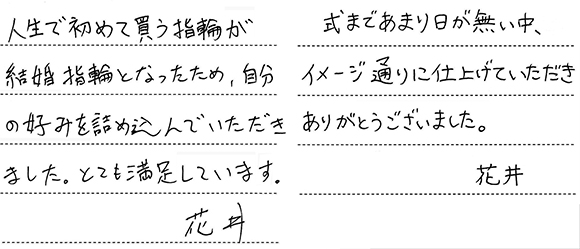 人生で初めて買う指輪が
結婚指輪となったため,自分
の好みを詰め込んでいただき
ました。とても満足しています。
花井
式まであまり日が無い中、
イメージ通りに仕上げていただき
ありがとうございました。
花井